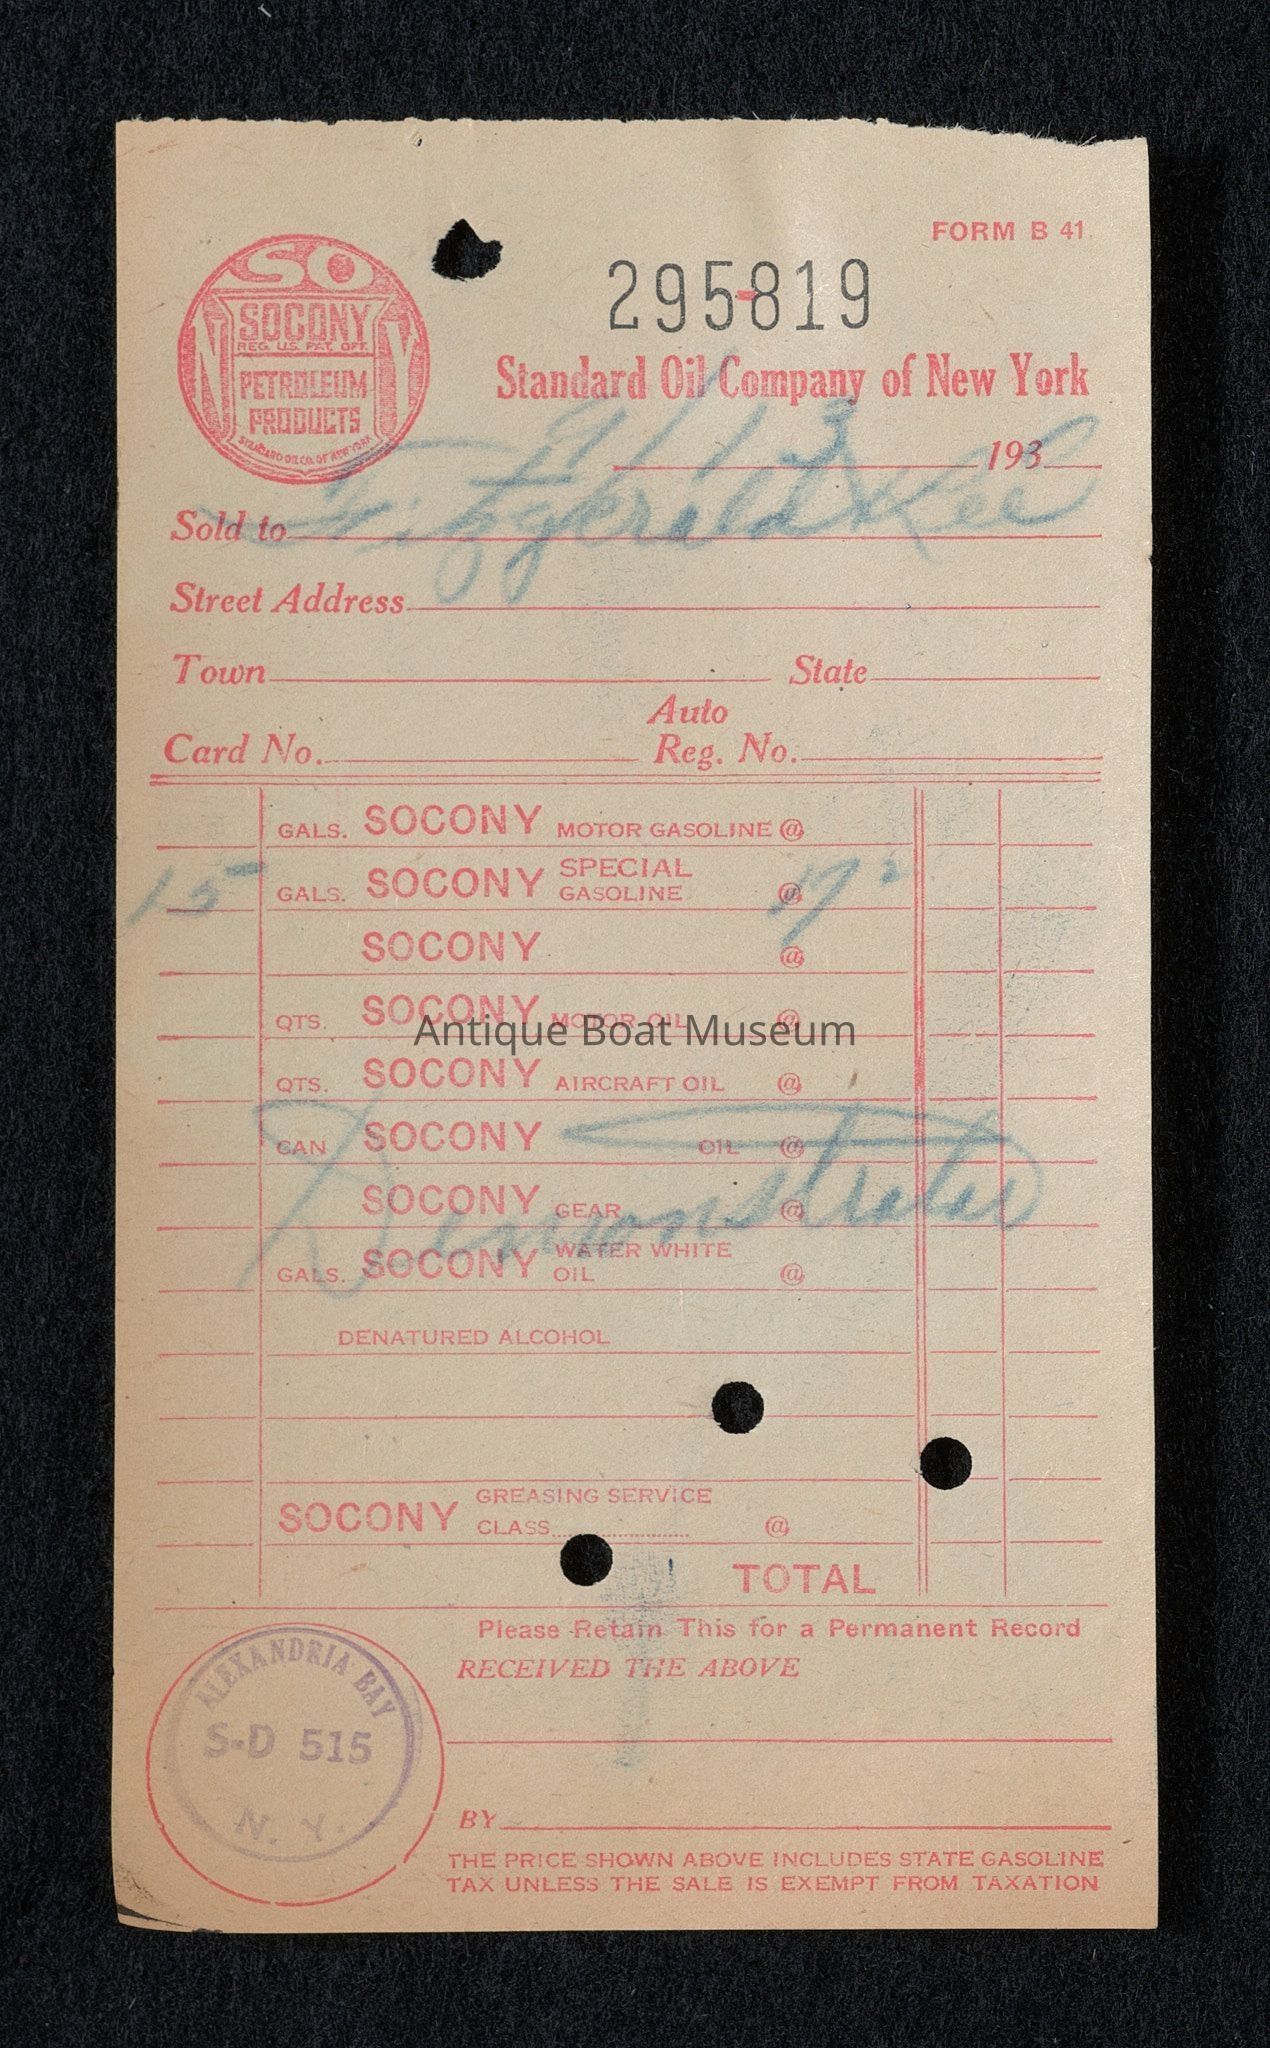 FORM B 41
SO
SOCONY
REG. U.S. PAT. OFF.
PETROLEUM
PRODUCTS
STANDARD OIL CO. OF NEW YORK
295-819
Standard Oil Company of New York
193
Sold to Fitzgerald & Lee
Street Address
Town State
Auto
Card No. Reg. No.
GALS. SOCONY MOTOR GASOLINE @
15 GALS. SOCONY SPECIAL GASOLINE @ 17 2
SOCONY @
QTS. SOCONY MOTOR OIL @
Antique Boat Museum
QTS. SOCONY AIRCRAFT OIL @
CAN SOCONY OIL @
Demonstrator
SOCONY GEAR @
GALS. SOCONY WATER WHITE OIL @
DENATURED ALCOHOL
SOCONY GREASING SERVICE
CLASS @
TOTAL
Please Retain This for a Permanent Record
RECEIVED THE ABOVE
ALEXANDRIA BAY
S-D 515
N. Y.
BY
THE PRICE SHOWN ABOVE INCLUDES STATE GASOLINE
TAX UNLESS THE SALE IS EXEMPT FROM TAXATION